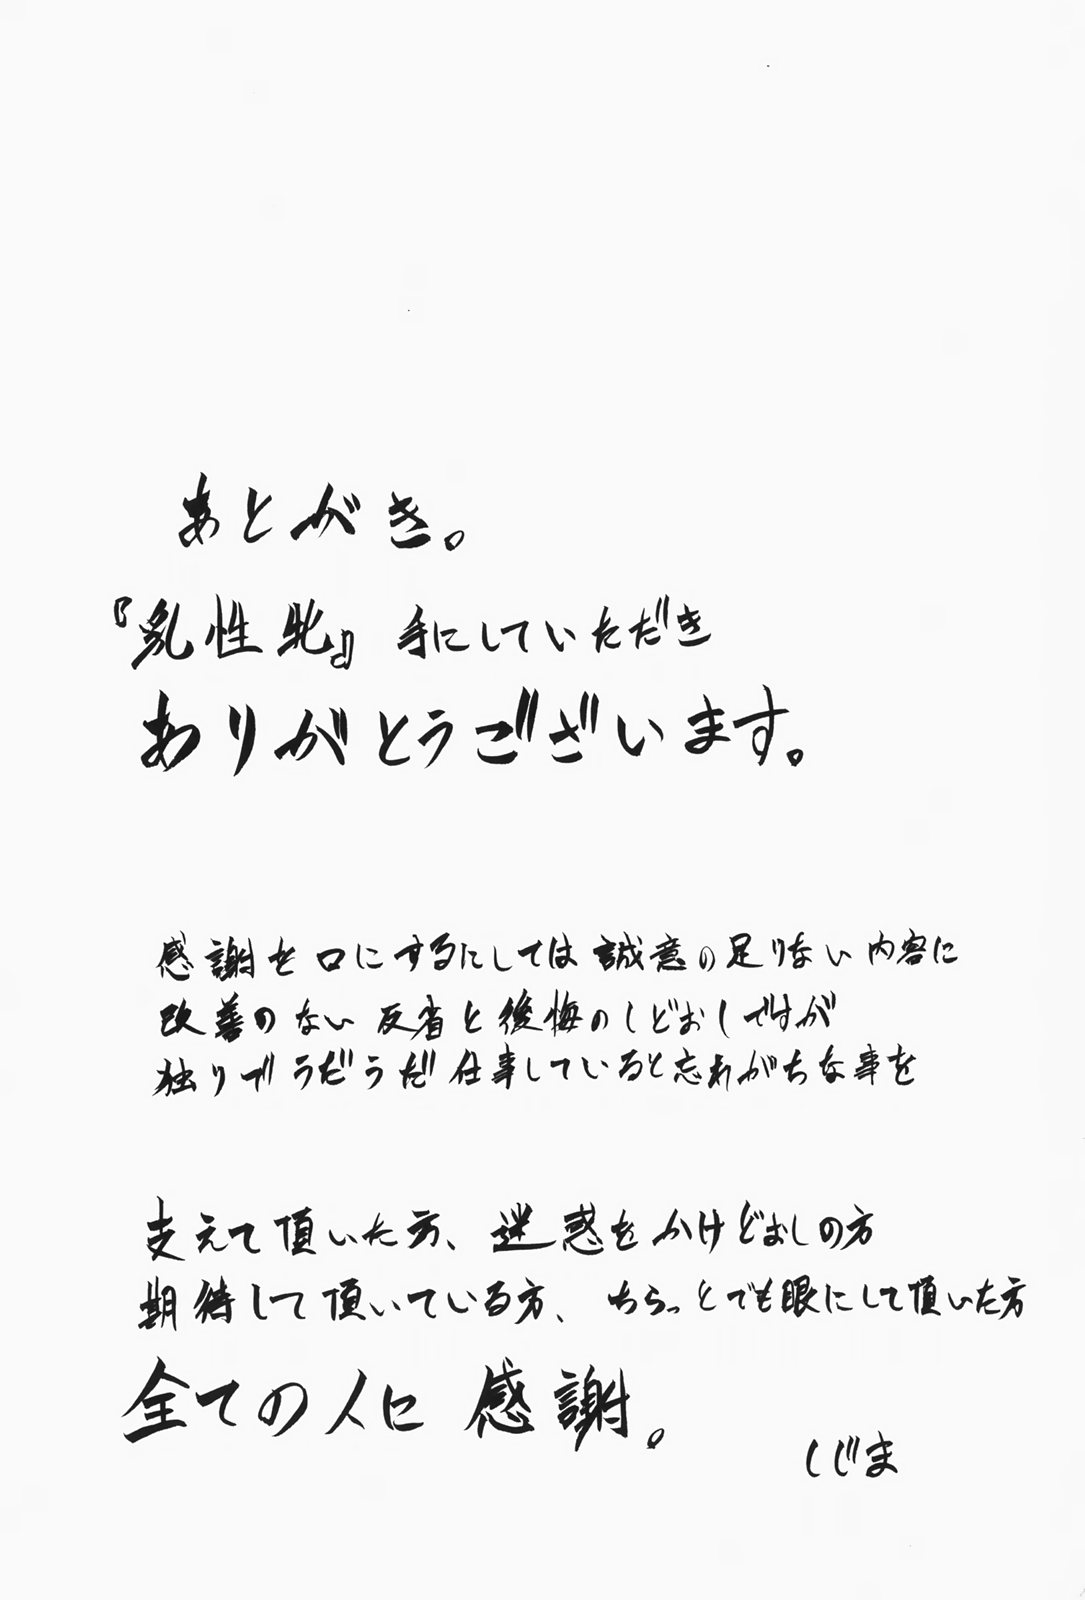 あとがき。
『乳性牝』手にしていただき
ありがとうございます。
感謝を口にするにしては誠意の足りない内容に
改善のない反省と後悔のしどおしですが
独りでうだうだ仕事していると忘れがちな事を
支えて頂いた方、迷惑をかけどおしの方
期待して頂いている方、ちらっとでも眼にして頂いた方
全ての人に感謝。
しじま